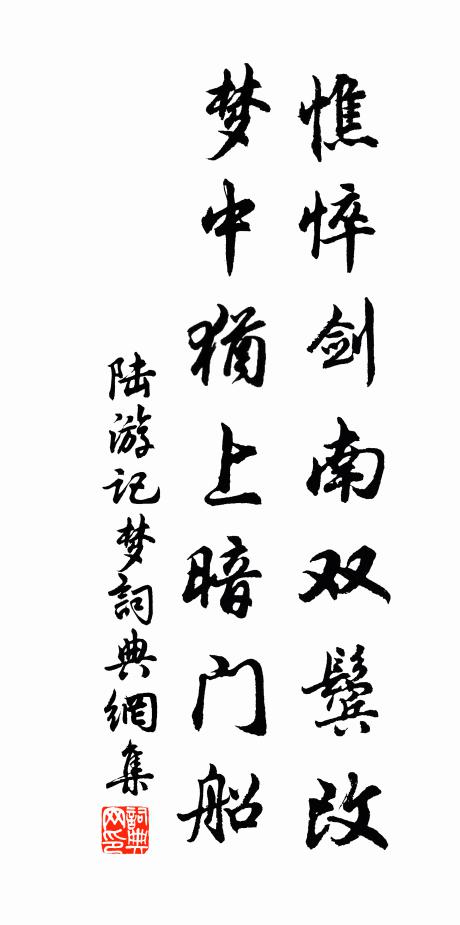 憔悴剑南双鬓改
梦中犹上暗门船
陆游记梦詞典網集
詞典网印